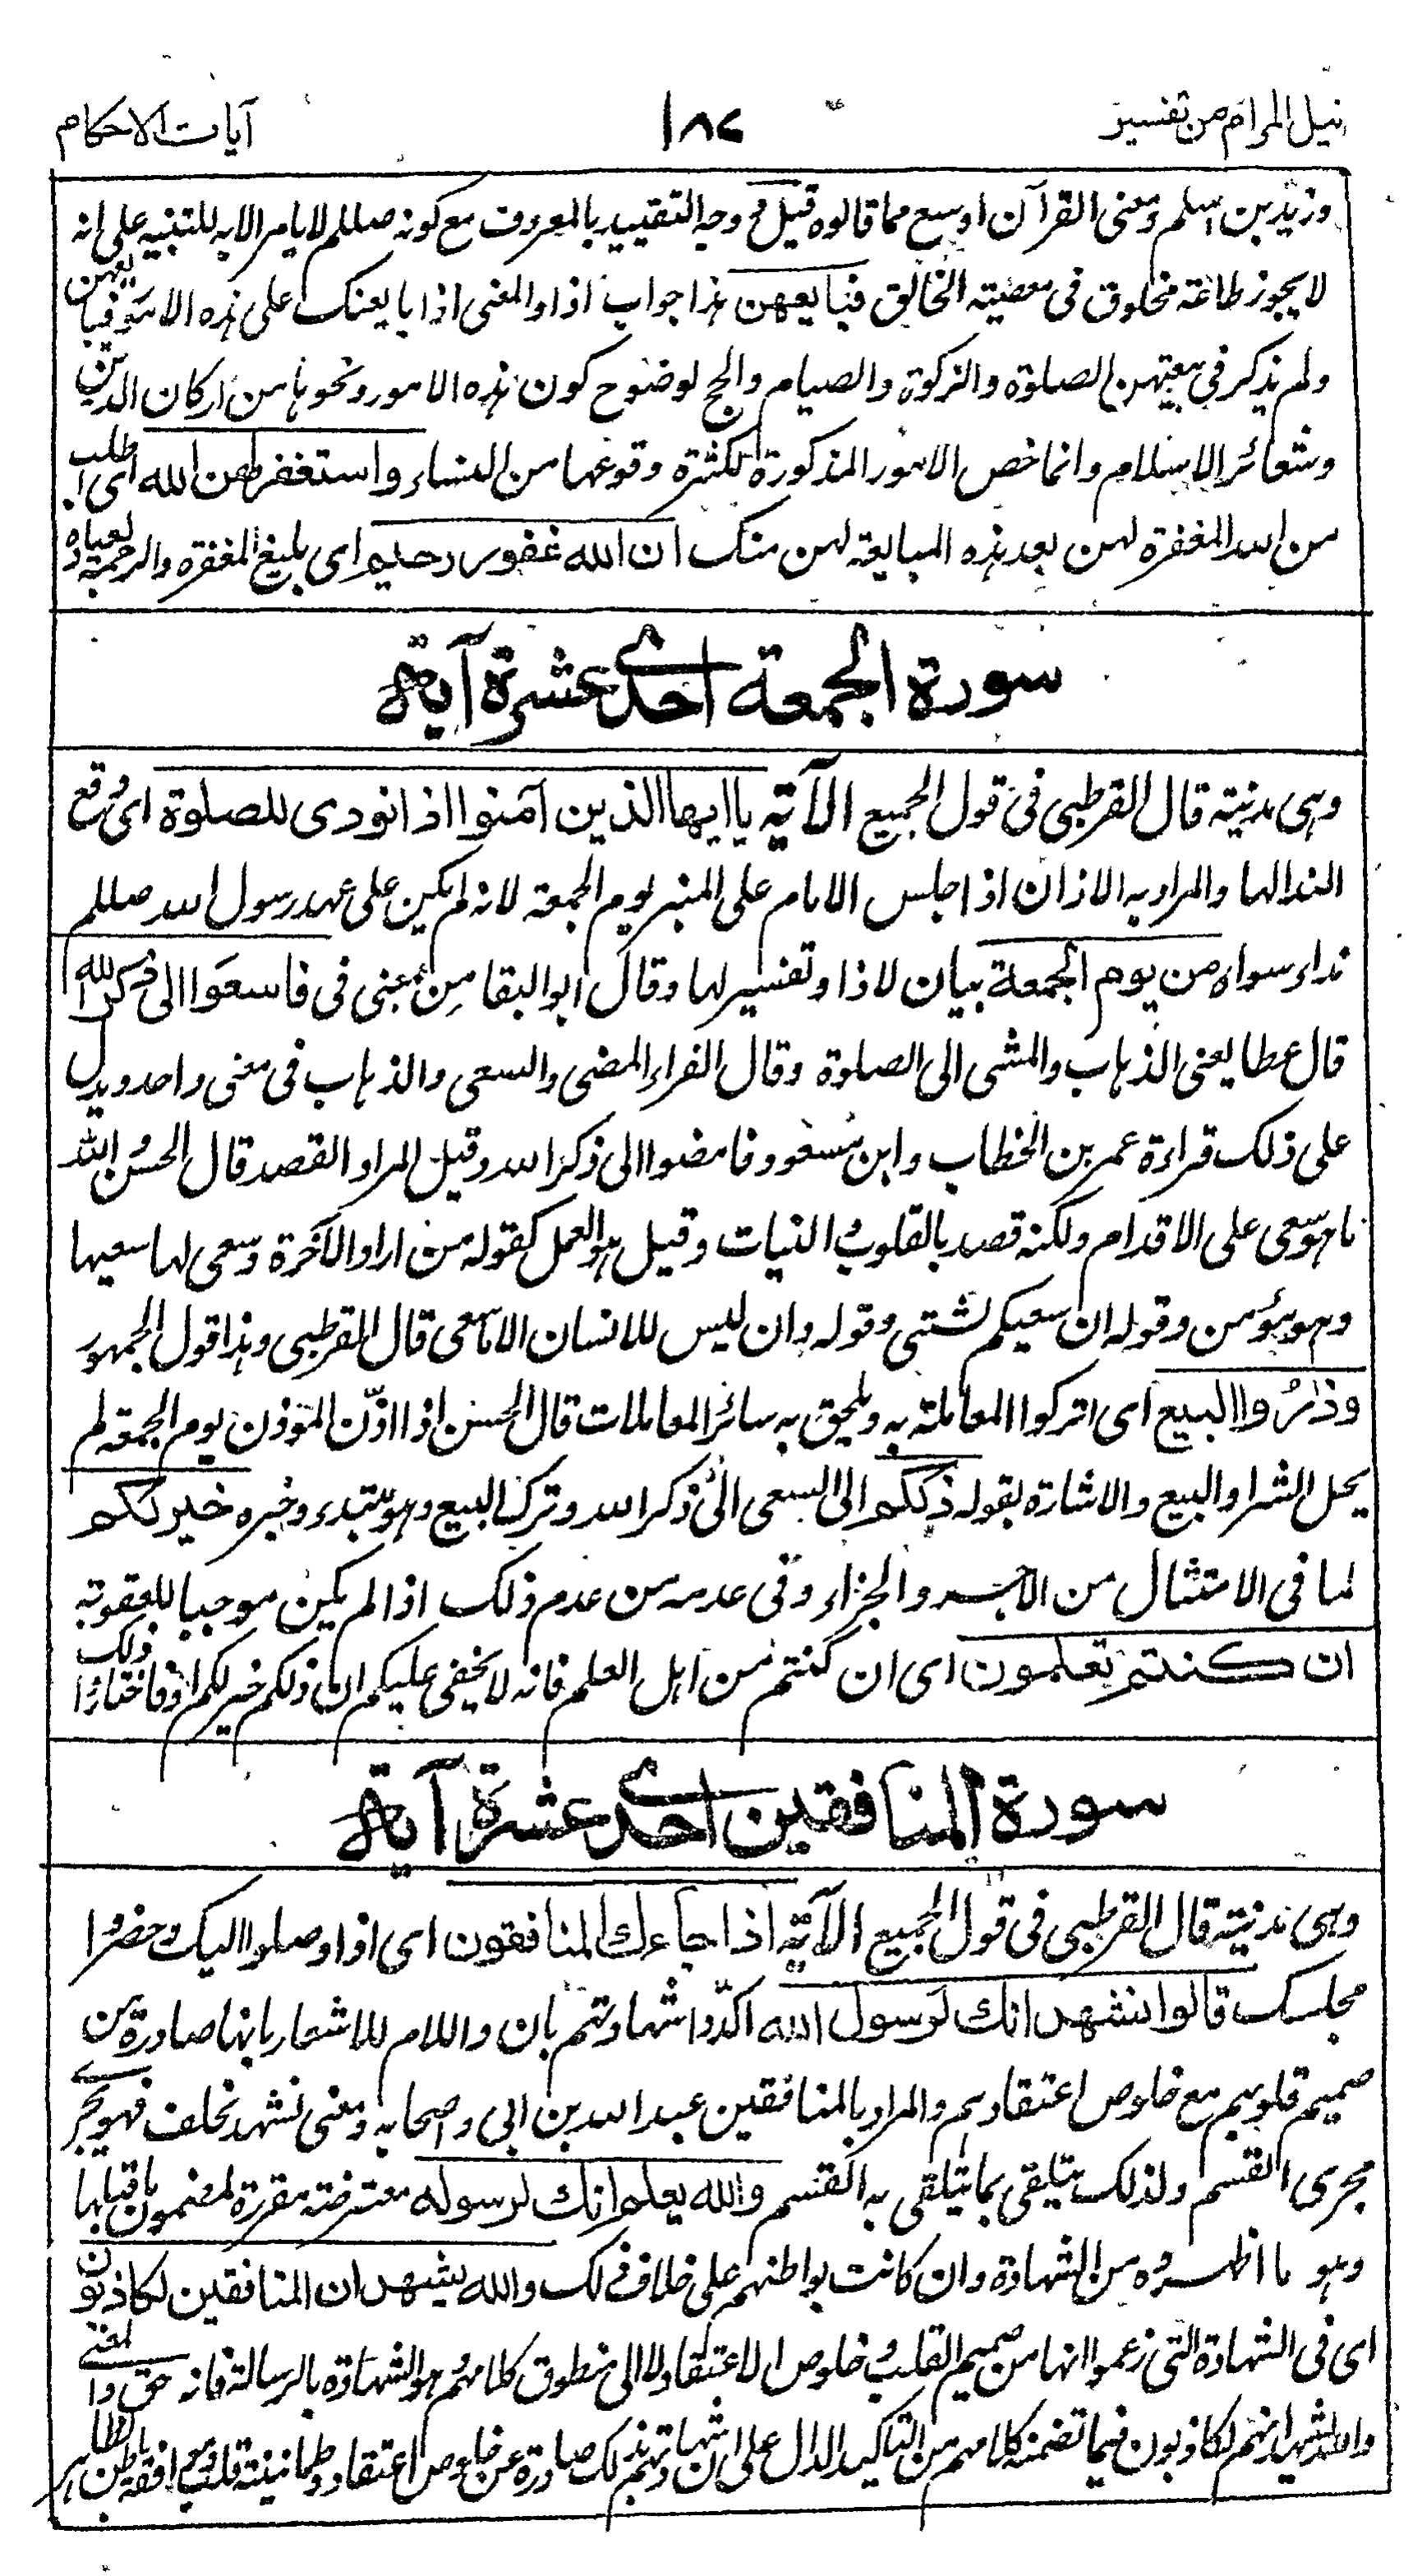 نيل المرام من تفسير ١٨٢ آيات الاحكام
وزيد بن اسلم ومعنى القرآن اوسع مما قالوه قيل وجه التقييد بالمعروف مع كونه صللم لا يامر الا به للتنبيه على انه
لا يجوز طاعة مخلوق فى معصية الخالق فبايعهن هذا جواب اذا والمعنى اذا بايعنك على هذه الامور فبايعهن
ولم يذكر فى بيعتهن الصلوة والزكوة والصيام والحج لوضوح كون هذه الامور ونحوها من اركان الدين
وشعائر الاسلام وانما خص الامور المذكورة لكثرة وقوعها من النساء واستغفر لهن الله اى اطلب
من الله المغفرة لهن بعد هذه المبايعة لهن منك ان الله غفور رحيم اى بليغ المغفرة والرحمة لعباده
سورة الجمعة احدى عشرة آية
وهى مدنية قال القرطبى فى قول الجميع الآية يا ايها الذين آمنوا اذا نودى للصلوة اى وقع
الندا لها والمراد به الاذان اذا جلس الامام على المنبر يوم الجمعة لانه لم يكن على عهد رسول الله صللم
نداء سواه من يوم الجمعة بيان لاذا وتفسير لها وقال ابو البقا من بمعنى فى فاسعوا الى ذكر الله
قال عطا يعنى الذهاب والمشى الى الصلوة وقال الفراء المضى والسعى والذهاب فى معنى واحد ويدل
على ذلك قراءة عمر بن الخطاب وابن مسعود فامضوا الى ذكر الله وقيل المراد القصد قال الحسن والله
ما هو سعى على الاقدام ولكنه قصد بالقلوب والنيات وقيل هو العمل كقوله من اراد الآخرة وسعى لها سعيها
وهو مؤمن وقوله ان سعيكم لشتى وقوله وان ليس للانسان الا ما سعى قال القرطبى وهذا قول الجمهور
وذروا البيع اى اتركوا المعاملة به ويلحق به سائر المعاملات قال الحسن اذا اذّن المؤذن يوم الجمعة لم
يحل الشرا والبيع والاشارة بقوله ذلكم الى السعى الى ذكر الله وترك البيع وهو مبتدء وخبره خير لكم
لما فى الامتثال من الاجر والجزاء وفى عدمه من عدم ذلك اذا لم يكن موجبا للعقوبة
ان كنتم تعلمون اى ان كنتم من اهل العلم فانه لا يخفى عليكم ان ذلكم خير لكم فاختاروا ذلك
سورة المنافقين احدى عشرة آية
وهى مدنية قال القرطبى فى قول الجميع الآية اذا جاءك المنافقون اى اذا وصلوا اليك وحضروا
مجلسك قالوا نشهد انك لرسول الله اكّدوا شهادتهم بان واللام للاشعار بانها صادرة من
صميم قلوبهم مع خلوص اعتقادهم والمراد بالمنافقين عبد الله بن ابى وصحابه ومعنى نشهد نحلف فهو يجرى
مجرى القسم ولذلك يتلقى بما يتلقى به القسم والله يعلم انك لرسوله معترضة مقررة لمضمون ما قبلها
وهو ما اظهروه من الشهادة وان كانت بواطنهم على خلاف ذلك والله يشهد ان المنافقين لكاذبون
اى فى الشهادة التى زعموا انها من صميم القلب وخلوص الاعتقاد لا الى منطوق كلامهم وهو الشهادة بالرسالة فانه حق والمعنى
والله يشهد انهم لكاذبون فيما تضمنه كلامهم من التاكيد الدال على ان شهادتهم بذلك صادرة عن خلوص اعتقاد وطمانينة قلب وموافقة باطن لظاهر